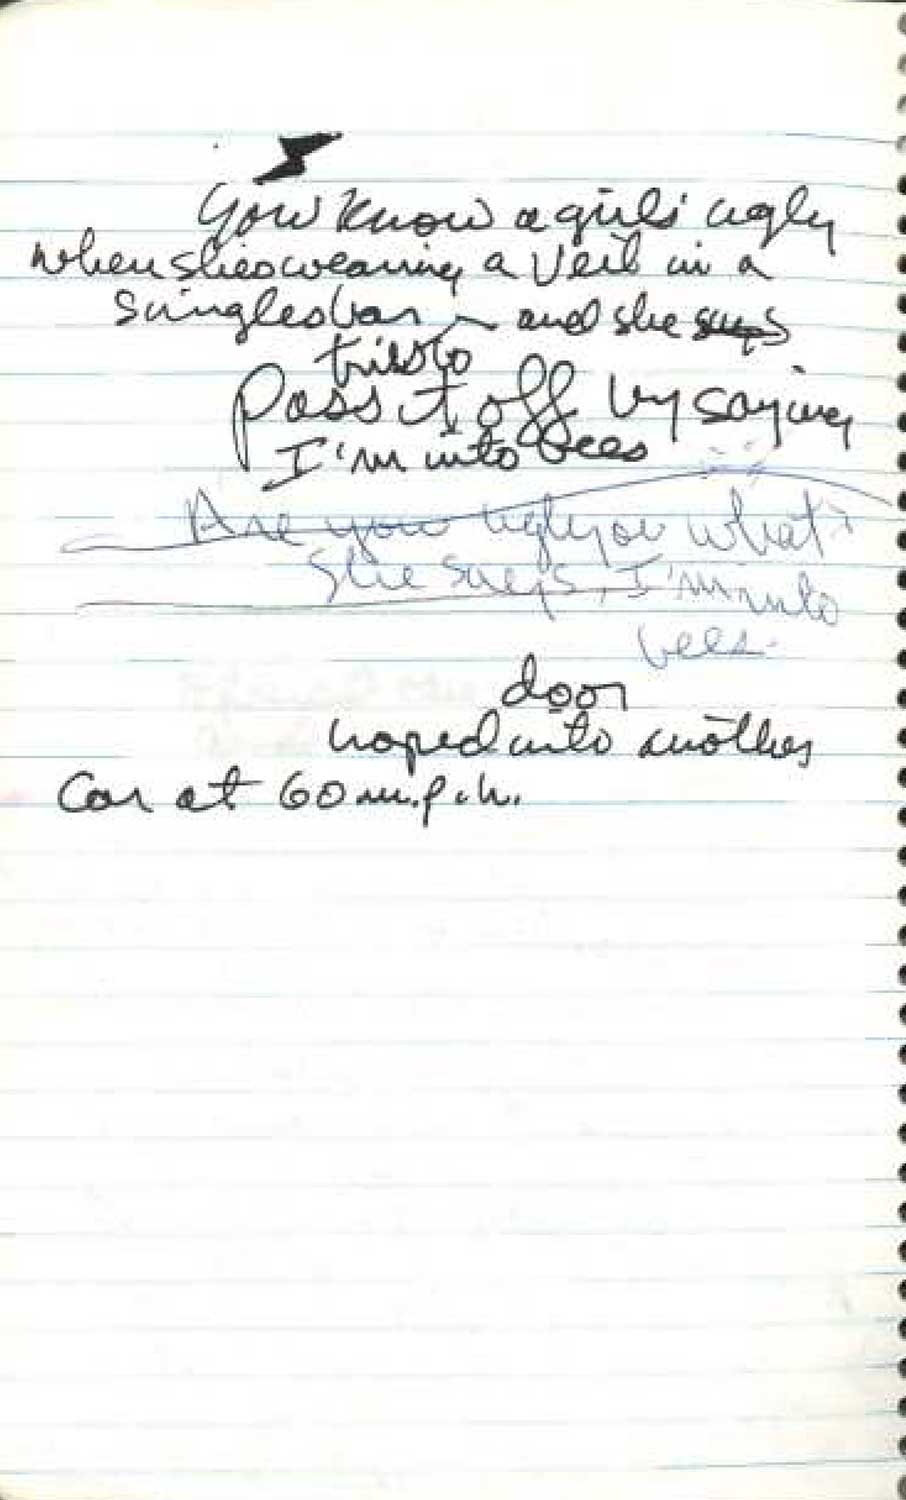 You know a girls ugly
when shes wearing a veil in a
singles bar - and she says
tries to
Pass it off by saying
I'm into bees
Are you ugly or what?
She says, I'm into
bees.
door
into another
Car at 60 m.p.h.